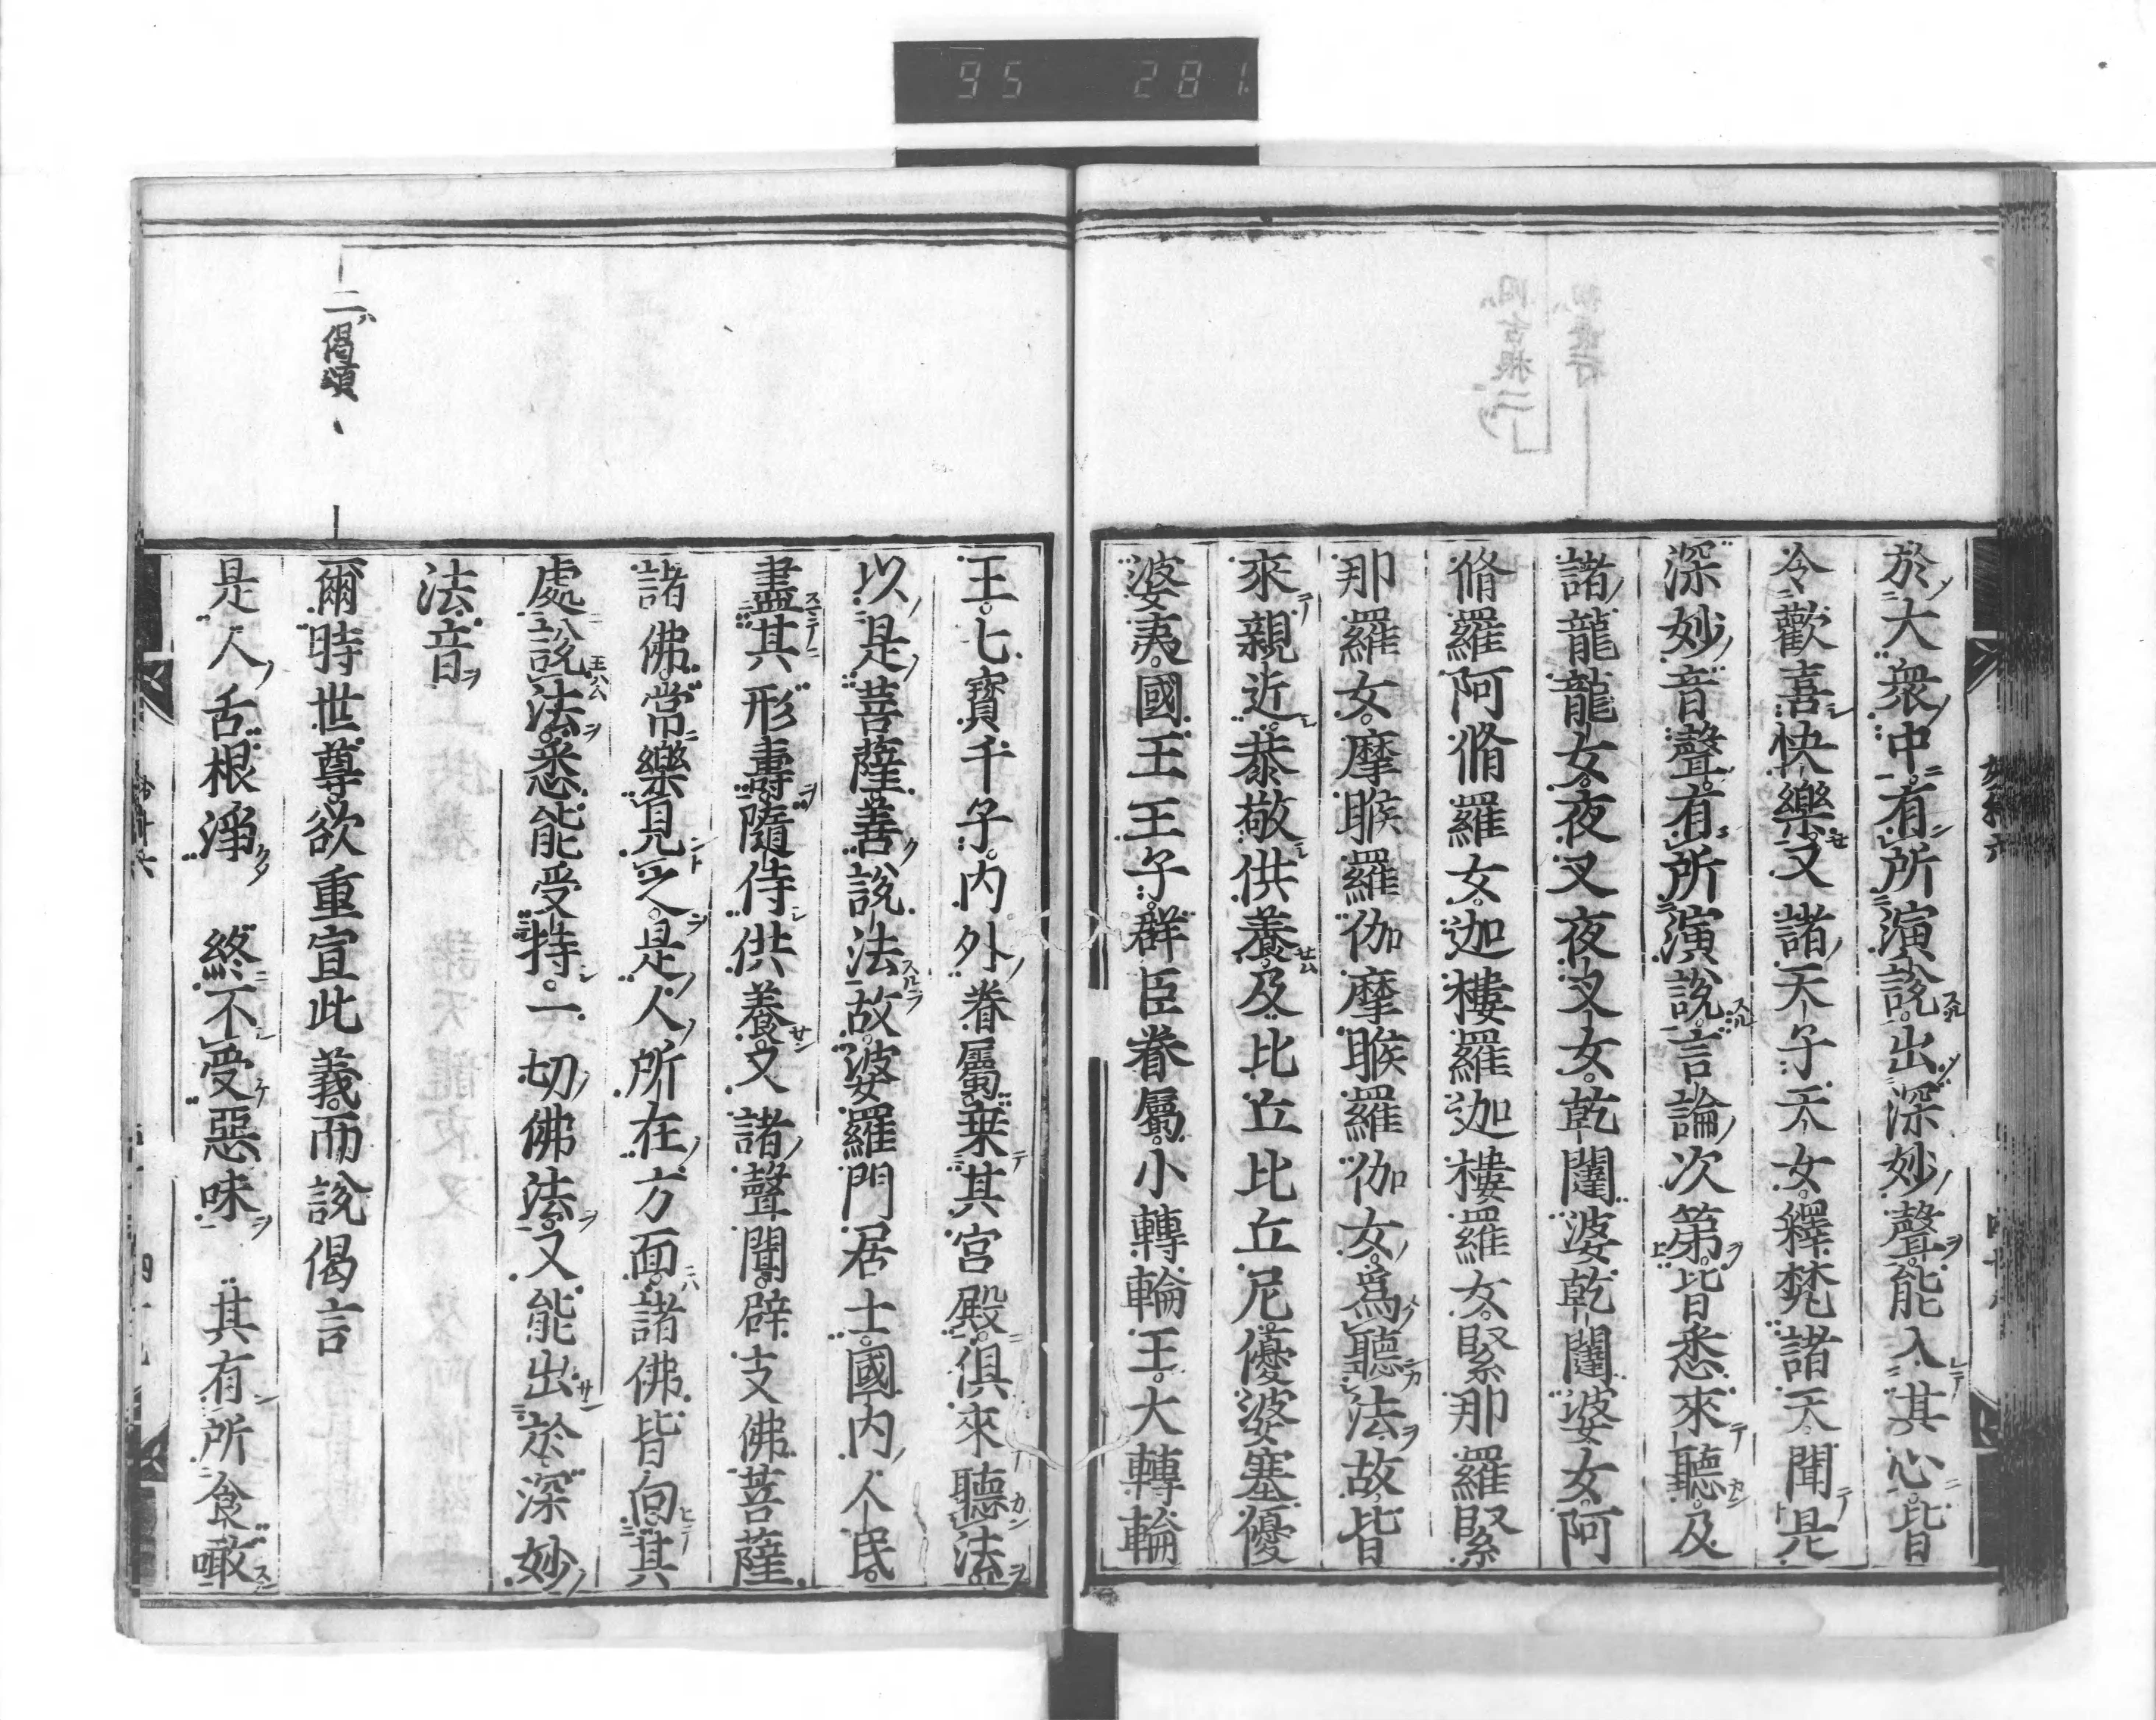 95 281
於大衆中有所演説出深妙聲能入其心皆
令歡喜快樂又諸天子天女釋梵諸天聞是
深妙音聲有所演説言論次第皆悉來聽及
諸龍龍女夜叉夜叉女乾闥婆乾闥婆女阿
脩羅阿脩羅女迦樓羅迦樓羅女緊那羅緊
那羅女摩睺羅伽摩睺羅伽女爲聽法故皆
來親近恭敬供養及比丘比丘尼優婆塞優
婆夷國王王子群臣眷屬小轉輪王大轉輪
王七寳千子内外眷屬乗其宮殿俱來聽法
以是菩薩善説法故婆羅門居士國内人民
盡其形壽隨侍供養又諸聲聞辟支佛菩薩
諸佛常樂見之是人所在方面諸佛皆向其
處説法悉能受持一切佛法又能出於深妙
法音
二偈頌
爾時世尊欲重宣此義而説偈言
是人舌根淨　終不受惡味　其有所食噉